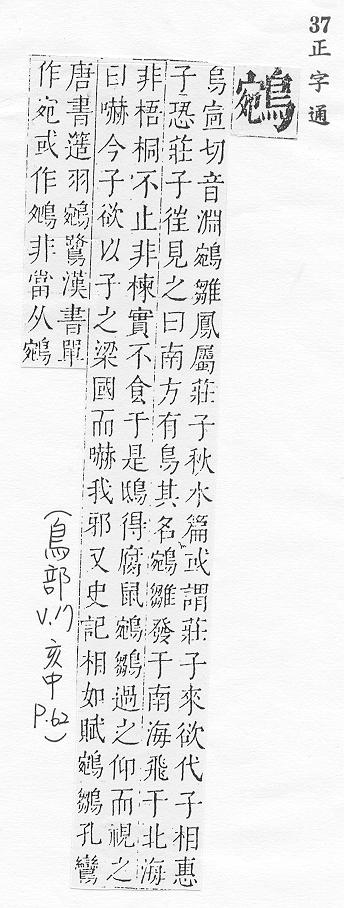 37正字通
鵷
烏宣切音淵鵷雛鳳屬莊子秋水篇或謂莊子來欲代子相惠
子恐莊子徃見之曰南方有鳥其名鵷雛發于南海飛于北海
非梧桐不止非楝實不食于是鴟得腐鼠鵷鶵過之仰而視之
曰嚇今子欲以子之梁國而嚇我邪又史記相如賦鵷鶵孔鸞
唐書羽鵷鷺漢書單
作宛或作非當从鵷
(鳥部 V.17 亥中 P.62)